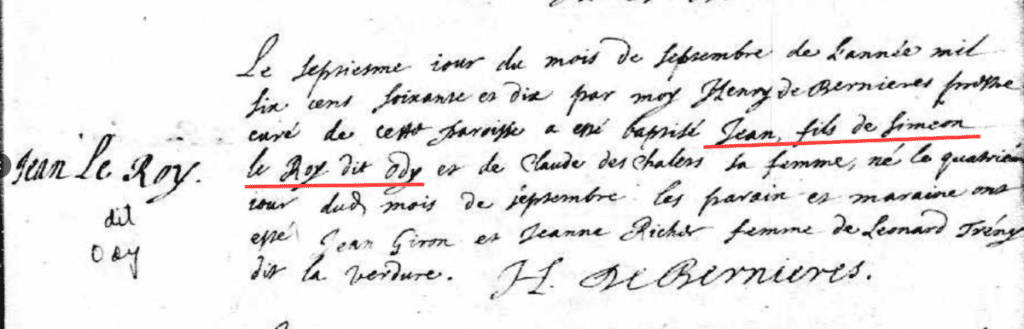 Le septiesme iour du mois de septembre de L'année mil
six cens soixante et dix par moy Henry de Bernieres prestre
curé de cette paroisse a esté baptisé Jean, fils de Simeon
le Roy dit Ody et de Claude des Chalets sa femme, né le quatrieme
iour dud mois de septembre les parain et maraine ont
esté Jean Giron et Jeanne Richer femme de Leonard Trény
dit la verdure. H. de Bernieres.
Jean Le Roy.
dit
Ody